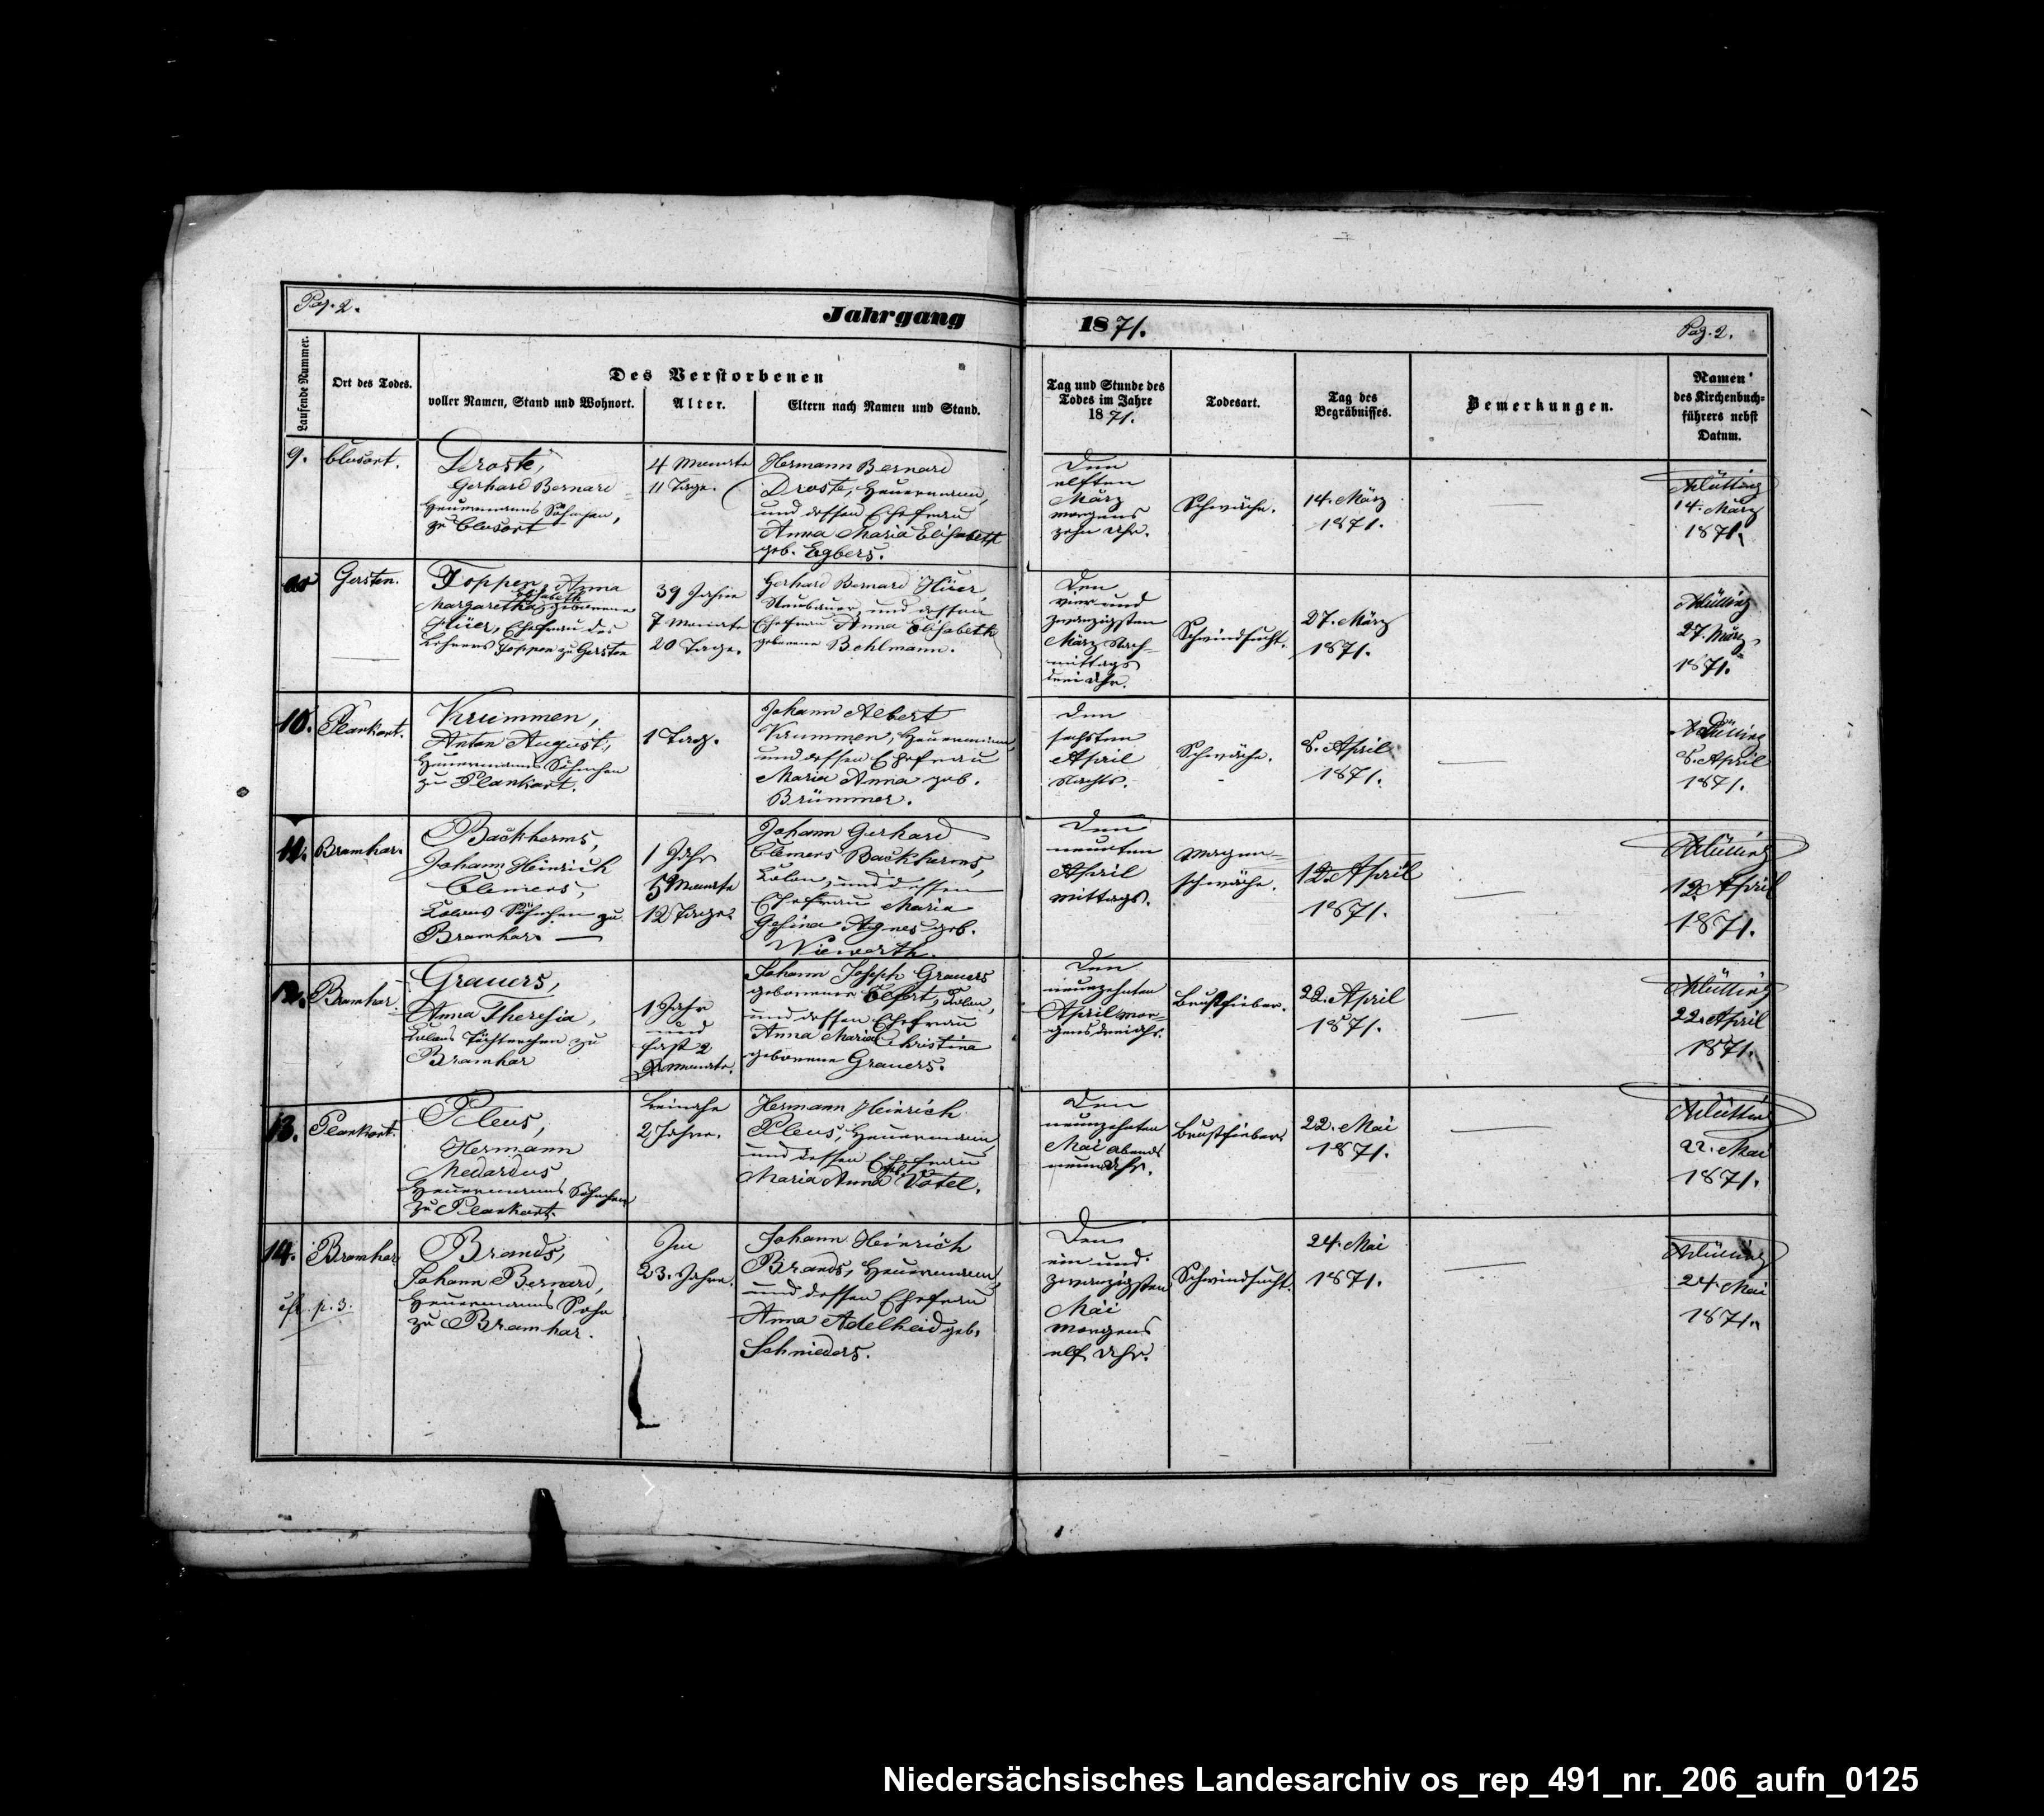 Pag. 2.
Jahrgang 1871.
Pag. 2.
Laufende Nummer.
Ort des Todes.
Des Verstorbenen
voller Namen, Stand und Wohnort.
Alter.
Eltern nach Namen und Stand.
Tag und Stunde des
Todes im Jahre
1871.
Todesart.
Tag des
Begräbnisses.
Bemerkungen.
Namen
des Kirchenbuch-
führers nebst
Datum.
9.
Clusort.
Droste,
Gerhard Bernard
Heuermanns Söhnchen,
zu Clusort
4 Monate
11 Tage.
Hermann Bernard
Droste, Heuermann,
und dessen Ehefrau
Anna Maria Elisabeth
geb. Egbers.
Den
elften
März
morgens
zehn Uhr.
Schwäche.
14. März
1871.
14. März
1871.
Gersten.
Foppen, Anna
Elisabeth
Margaretha geborene
Hüer, Ehefrau des
Lehrers Foppen zu Gersten
39 Jahre
7 Monate
20 Tage.
Gerhard Bernard Hüer,
und dessen
Ehefrau Anna Elisabeth
geborene Behlmann.
Den
vier und
zwanzigsten
März Nach-
mittags
drei Uhr.
Schwindsucht.
27. März
1871.
27. März
1871.
10.
Plankort.
Krümmen,
Anton August,
Heuermanns Söhnchen
zu Plankort.
1 Tag.
Johann Albert
Krummen, Heuermann,
und dessen Ehefrau
Maria Anna geb.
Brümmer.
Den
sechsten
April
Nachts.
Schwäche.
8. April
1871.
8. April
1871.
11.
Bramhar.
Backherms,
Johann Heinrich
Clemens,
Colons Söhnchen zu
Bramhar.
1 Jahr
5 Monate
12 Tage.
Johann Gerhard
Clemens Backherms,
Colon, und dessen
Ehefrau Maria
Gesina Agnes geb.
Niewarth.
Den
neunten
April
mittags.
Magen-
schwäche.
12. April
1871.
12. April
1871.
12.
Bramhar.
Grauers,
Anna Theresia,
Colons Töchterchen zu
Bramhar
1 Jahr
und
fast 2
Monate.
Johann Joseph Grauers
geborener Elfert, Colon,
und dessen Ehefrau
Anna Maria Christina
geborene Grauers.
Den
neunzehnten
April mor-
gens drei Uhr.
Brustfieber.
22. April
1871.
22. April
1871.
13.
Plankort.
Pleus,
Hermann
Medardus
Heuermanns Söhnchen
zu Plankort.
Beinahe
2 Jahre.
Hermann Heinrich
Pleus, Heuermann,
und dessen Ehefrau
Maria Anna geb. Votel.
Den
neunzehnten
Mai abends
neun Uhr.
Brustfieber.
22. Mai
1871.
22. Mai
1871.
14.
Bramhar
Brands,
Johann Bernard,
Heuermanns Sohn
zu Bramhar.
p. 3.
Im
23. Jahre.
Johann Heinrich
Brands, Heuermann,
und dessen Ehefrau
Anna Adelheid geb.
Schnieders.
Den
ein und
zwanzigsten
Mai
morgens
elf Uhr.
Schwindsucht.
24. Mai
1871.
24. Mai
1871.
Niedersächsisches Landesarchiv os_rep_491_nr._206_aufn_0125